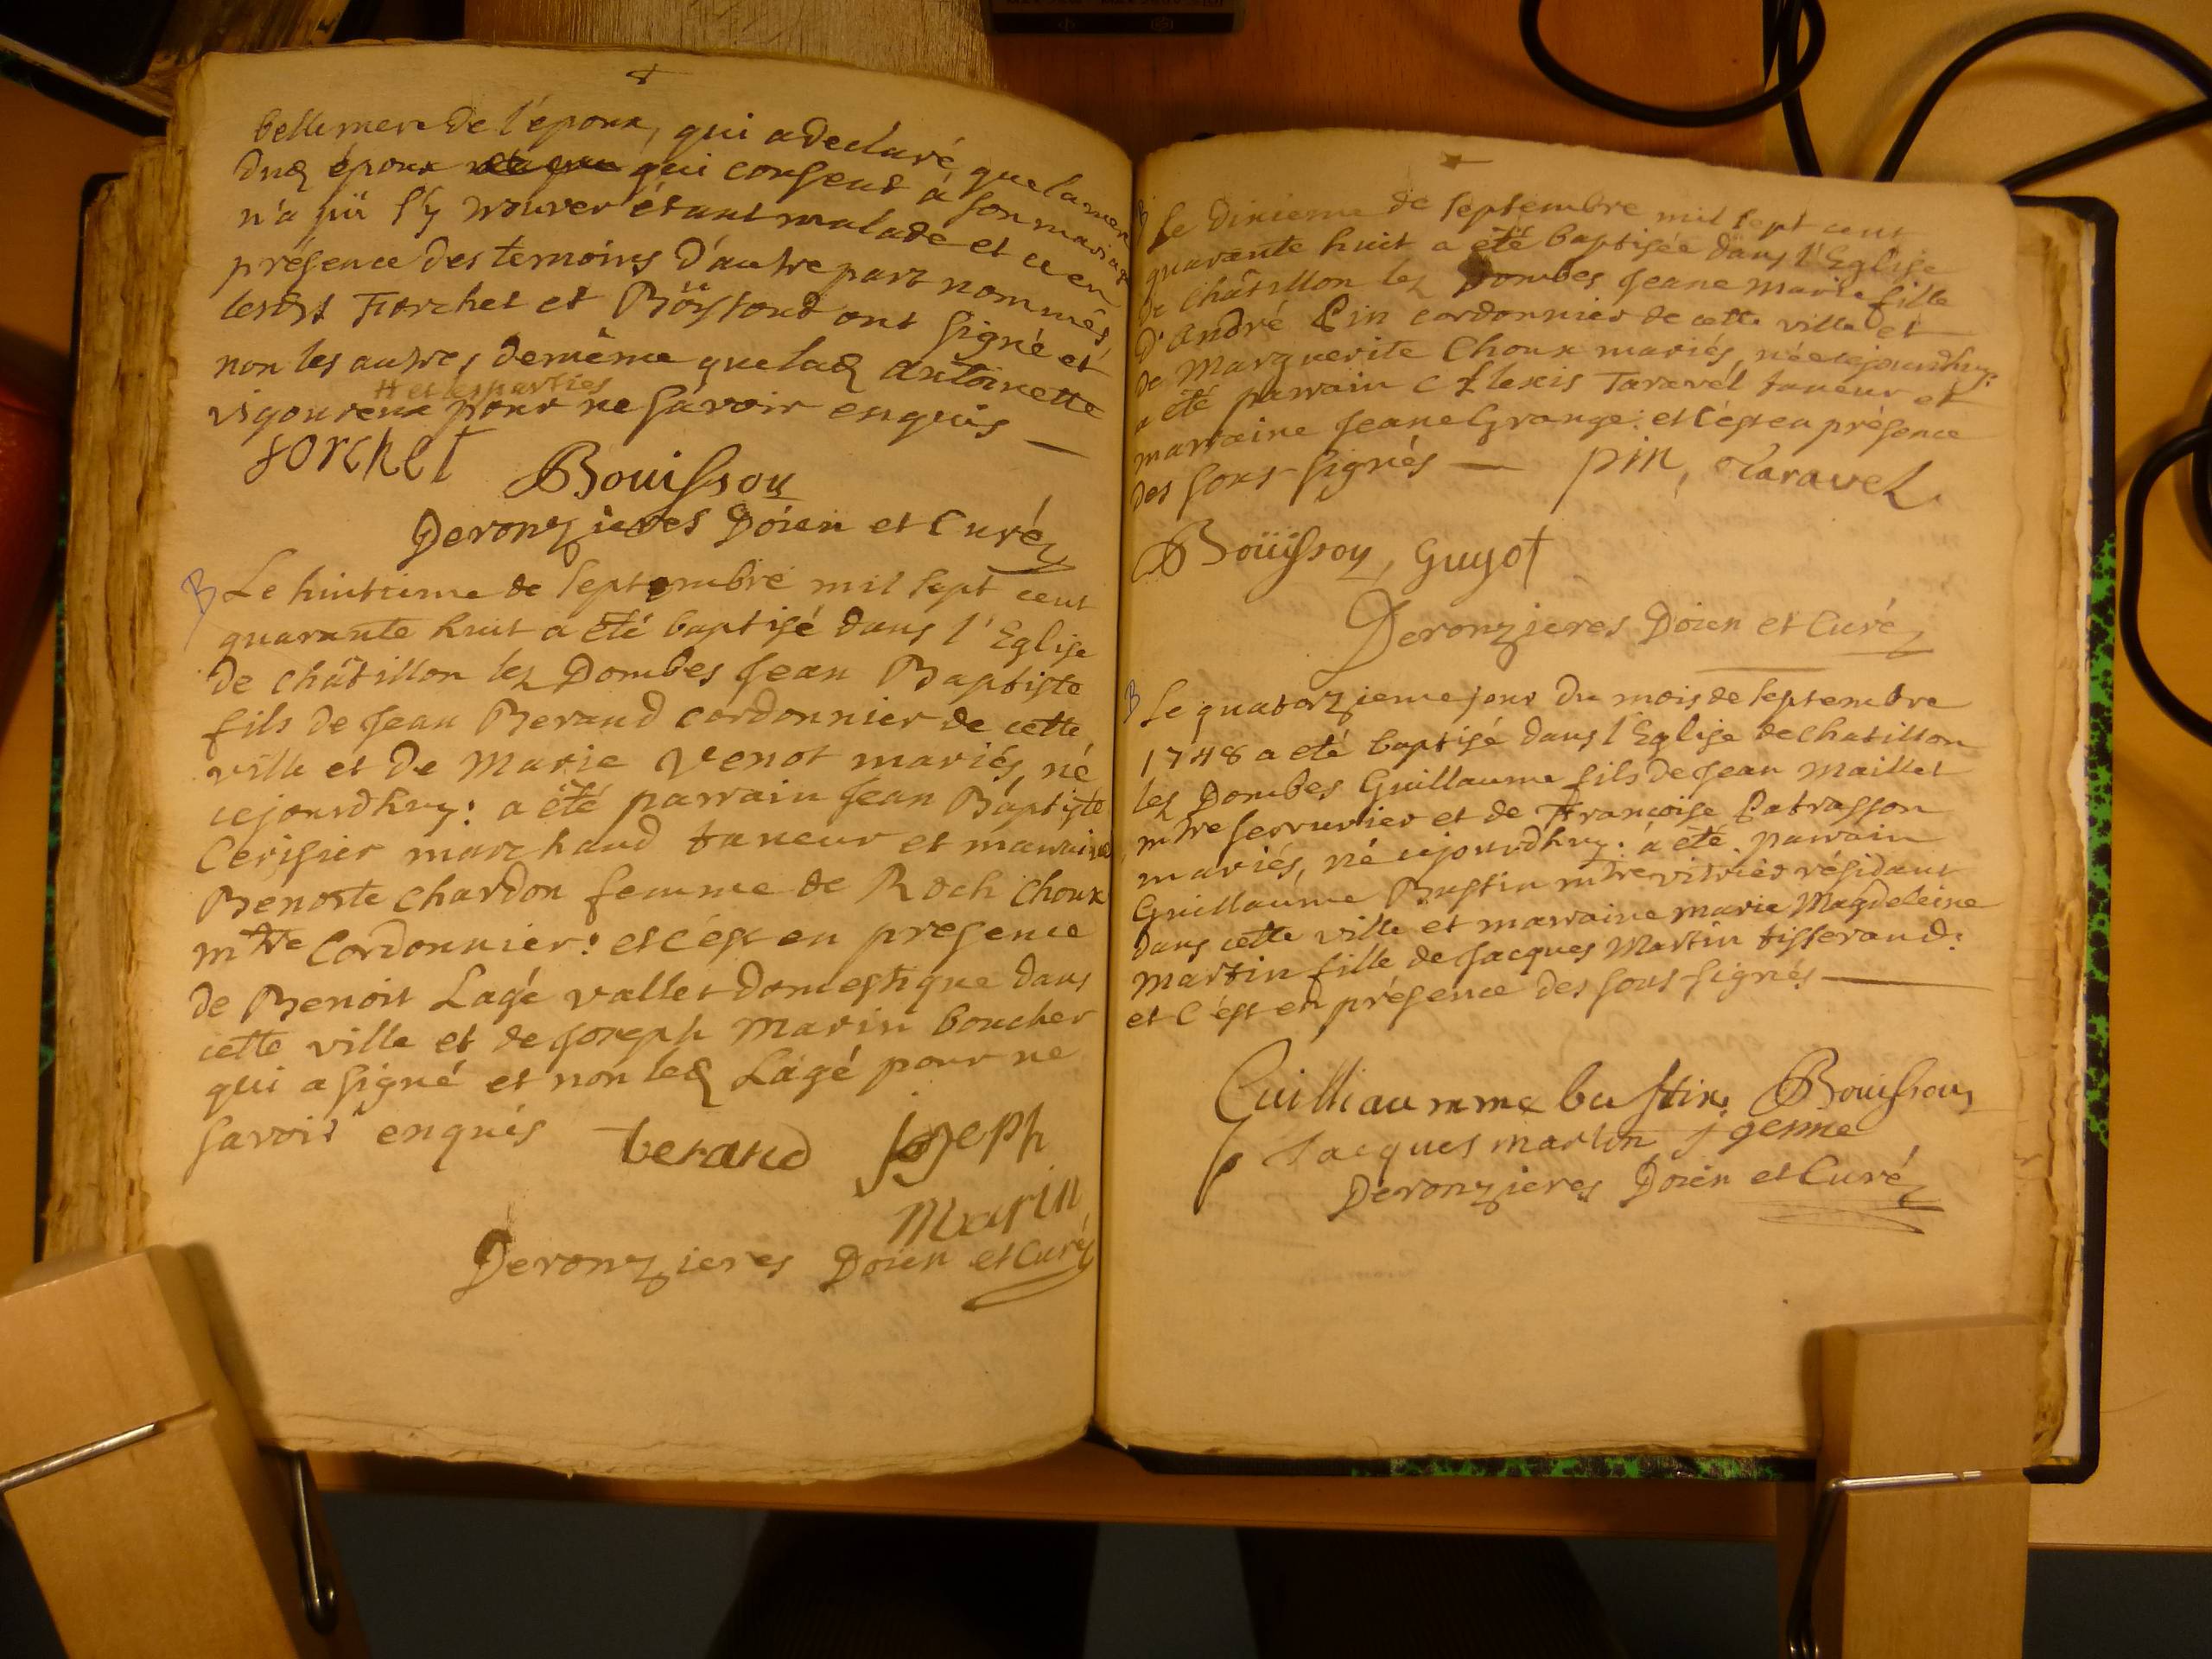 belle mere de l'époux, qui a declaré que la mere
dud époux qui consent à son mariage
n'a pû s'y trouver étant malade et ce en
présence des temoins d'autre part nommés,
lesdts Forchet et Böyssoud ont signé et
non les autres de même que lad antoinette
# et les parties
vigoureux pour ne savoir enquis —
forchet Bouisson
Deronzieres Doïen et Curé
B Le huitieme de septembre mil sept cent
quarante huit a été baptisé dans l'Eglise
de châtillon lez Dombes Jean Baptiste
fils de Jean Beraud cordonnier de cette
ville et de Marie Venot mariés, né
cejourdhuy: a été parrain Jean Baptiste
Cerisier marchand taneur et marraine
Benoite Chardon femme de Roch Choux
mtre Cordonnier: et c'ést en presence
de Benoit Lagé vallet domestique dans
cette ville et de Joseph Marin boucher
qui a signé et non led Lagé pour ne
savoir enquis beraud Joseph
Marin
Deronzieres Doïen et Curé
B Le dixieme de septembre mil sept cent
quarante huit a été baptisée dans l'Eglise
de Châtillon lez Dombes Jeane Marie fille
d'andré Pin cordonnier de cette ville et
de Marguerite Choux mariés, née cejourdhuy:
a été parrain Alexis Taravél taneur et
marraine Jeane Grange: et c'ést en présence
des sous-signés — pin, Taravel
Boüisson, Guyot
Deronzieres Doïen et Curé
B Le quatorzieme jour du mois de septembre
1748 a eté baptisé dans l'Eglise de chatillon
lez Dombes Guillaume fils de Jean Maillet
mtre serrurier et de Françoise Patrasson
mariés, né cejourdhuy: a été parrain
Guillaume Bustin mtre vitrier résidant
dans cette ville et marraine marie Magdeleine
Martin fille de Jacques Martin tisserand:
et c'ést en présence des sous signés —
Guilliaumme bustin, Bouisson,
Jacques martin j genne
Deronzieres Doïen et Curé